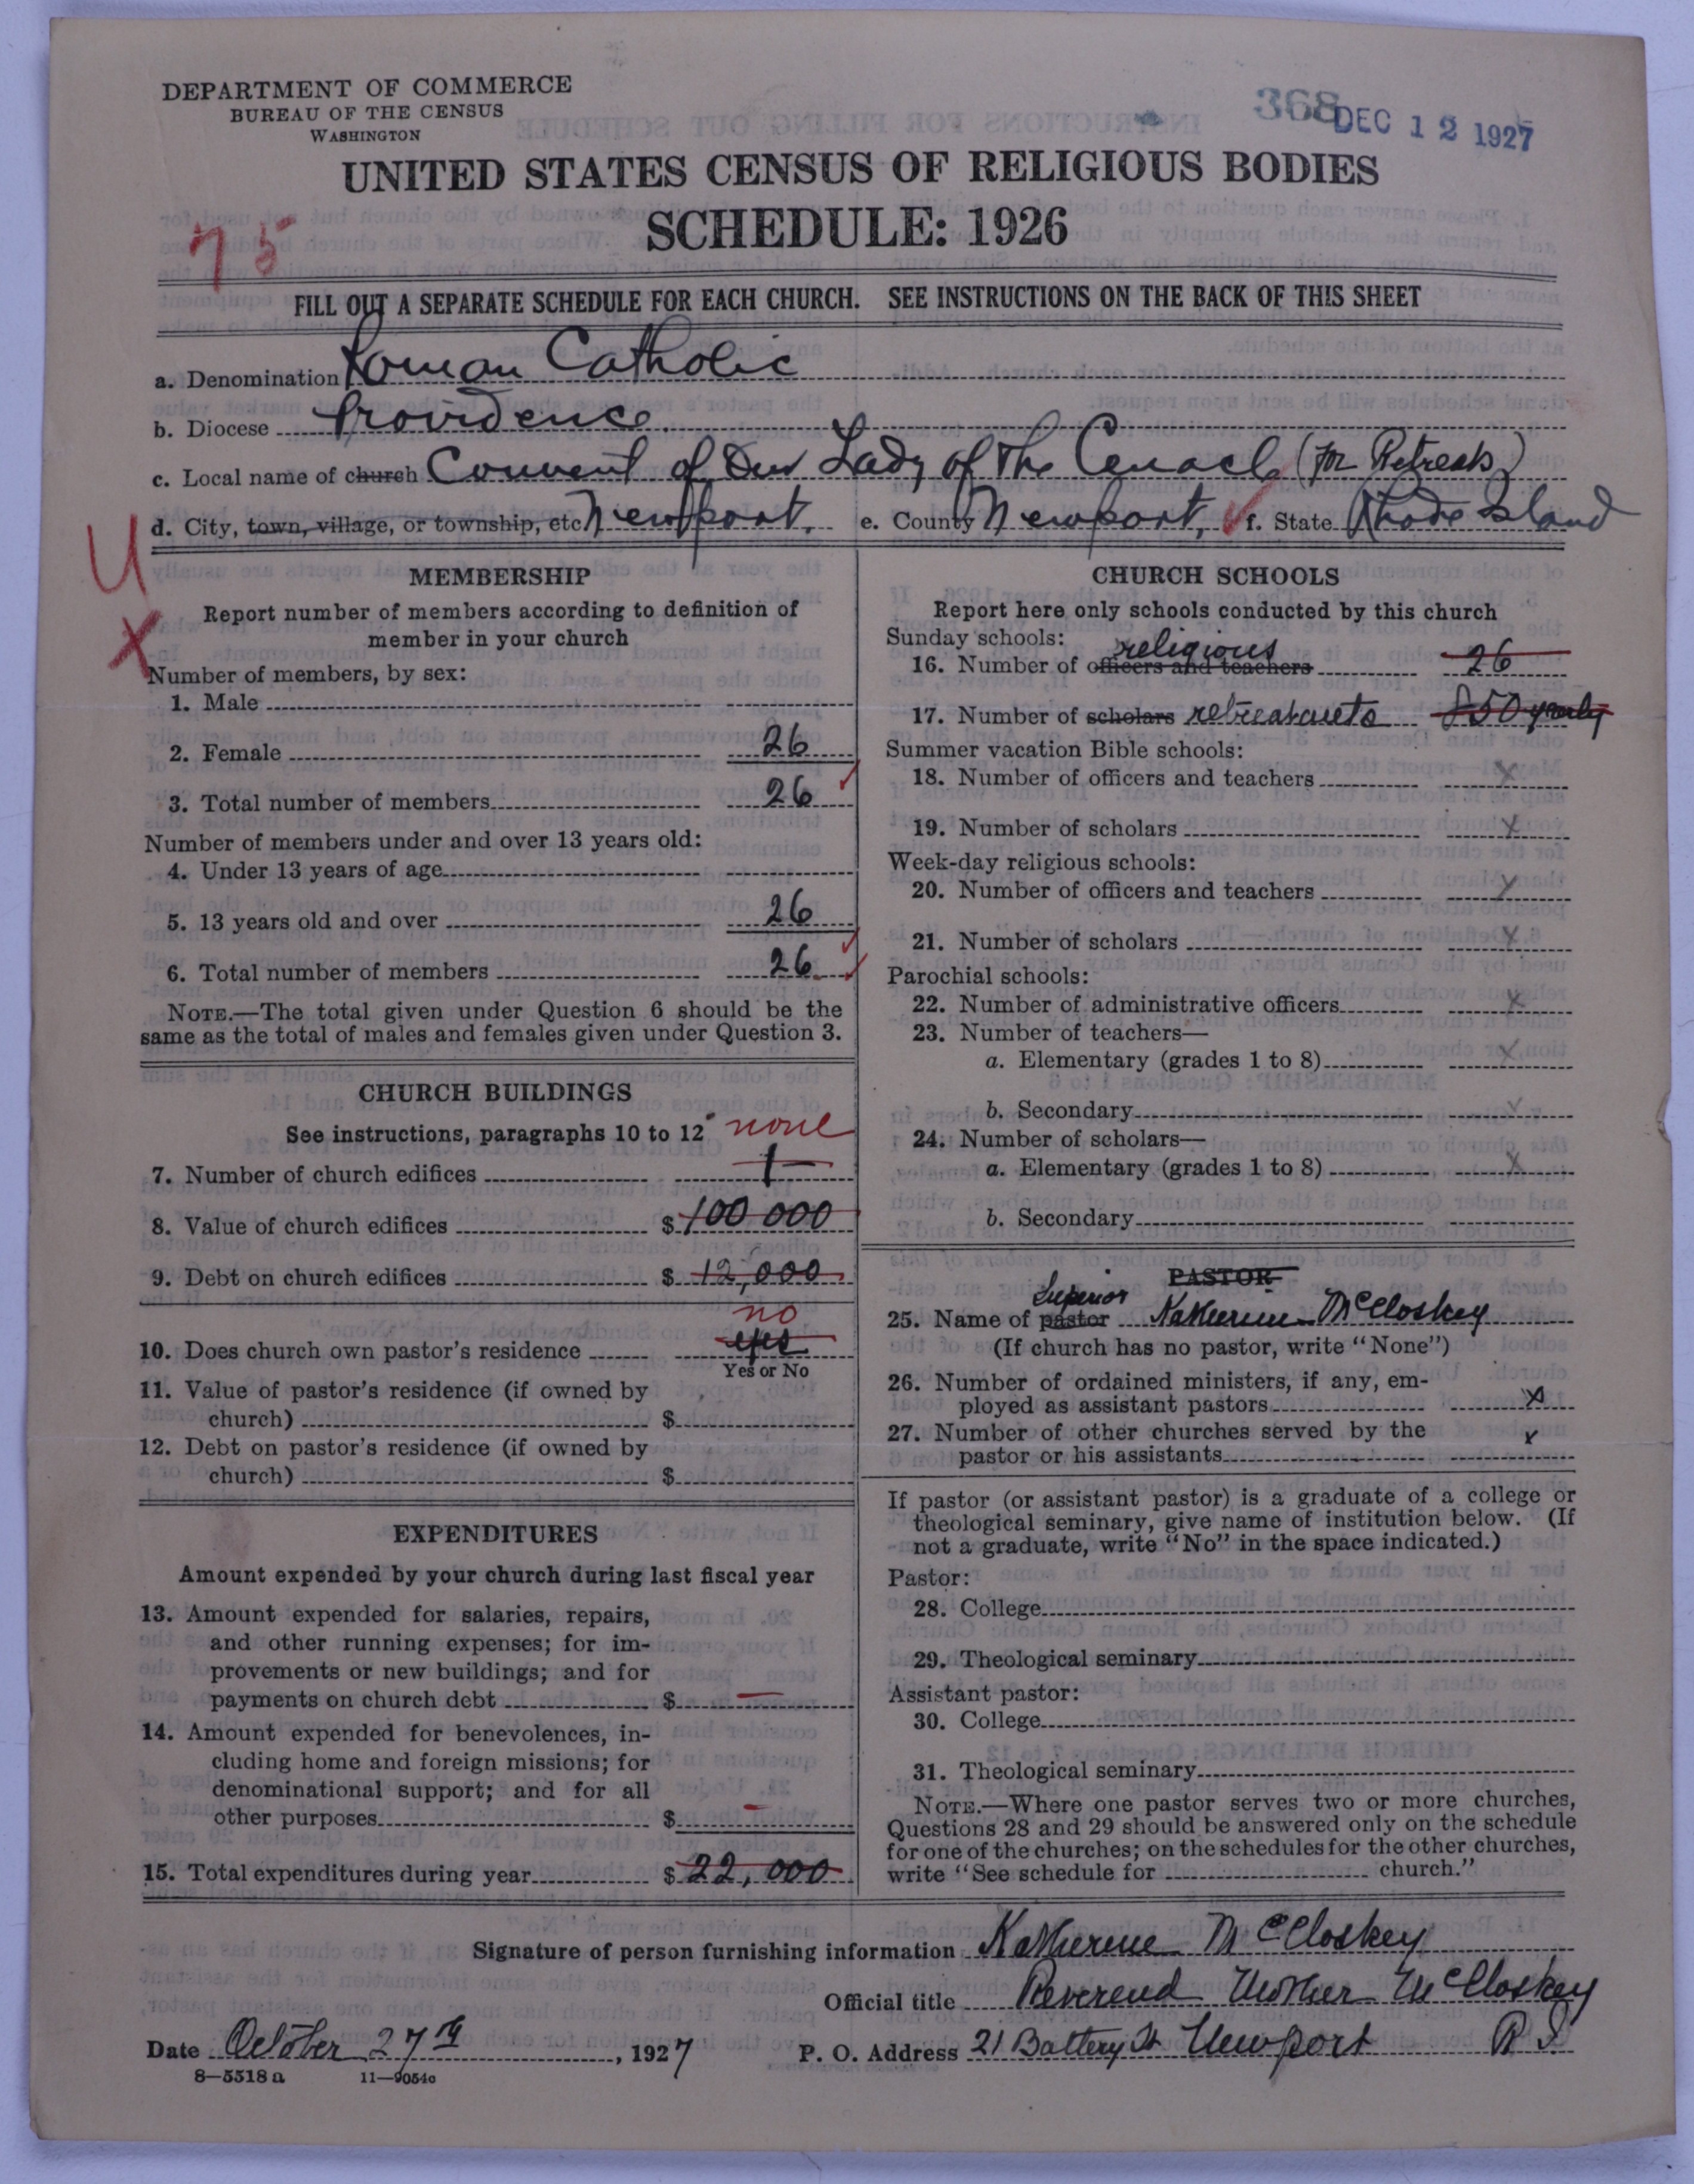 DEPARTMENT OF COMMERCE
BUREAU OF THE CENSUS
WASHINGTON
368 DEC 12 1927
UNITED STATES CENSUS OF RELIGIOUS BODIES
SCHEDULE: 1926
75
FILL OUT A SEPARATE SCHEDULE FOR EACH CHURCH. SEE INSTRUCTIONS ON THE BACK OF THIS SHEET
a. Denomination Roman Catholic
b. Diocese Providence
c. Local name of church Convent of Our Lady of The Cenacle (for Retreats)
d. City, town, village, or township, etc. Newport, e. County Newport, f. State Rhode Island
U
X
MEMBERSHIP
Report number of members according to definition of
member in your church
Number of members, by sex:
1. Male
2. Female 26
3. Total number of members 26
Number of members under and over 13 years old:
4. Under 13 years of age
5. 13 years old and over 26
6. Total number of members 26
NOTE.—The total given under Question 6 should be the
same as the total of males and females given under Question 3.
CHURCH BUILDINGS
See instructions, paragraphs 10 to 12 none
7. Number of church edifices 1
8. Value of church edifices $100 000
9. Debt on church edifices $ 12,000
no
10. Does church own pastor's residence yes
Yes or No
11. Value of pastor's residence (if owned by
church) $
12. Debt on pastor's residence (if owned by
church) $
EXPENDITURES
Amount expended by your church during last fiscal year
13. Amount expended for salaries, repairs,
and other running expenses; for im-
provements or new buildings; and for
payments on church debt $ —
14. Amount expended for benevolences, in-
cluding home and foreign missions; for
denominational support; and for all
other purposes $ —
15. Total expenditures during year $ 22,000
CHURCH SCHOOLS
Report here only schools conducted by this church
Sunday schools:
religious
16. Number of officers and teachers 26
17. Number of scholars retreatants 850 yearly
Summer vacation Bible schools:
18. Number of officers and teachers X
19. Number of scholars X
Week-day religious schools:
20. Number of officers and teachers X
21. Number of scholars X
Parochial schools:
22. Number of administrative officers X
23. Number of teachers—
a. Elementary (grades 1 to 8) X
b. Secondary X
24. Number of scholars—
a. Elementary (grades 1 to 8) X
b. Secondary
PASTOR
Superior
25. Name of pastor Katherine McCloskey
(If church has no pastor, write "None")
26. Number of ordained ministers, if any, em-
ployed as assistant pastors X
27. Number of other churches served by the
pastor or his assistants X
If pastor (or assistant pastor) is a graduate of a college or
theological seminary, give name of institution below. (If
not a graduate, write "No" in the space indicated.)
Pastor:
28. College
29. Theological seminary
Assistant pastor:
30. College
31. Theological seminary
NOTE.—Where one pastor serves two or more churches,
Questions 28 and 29 should be answered only on the schedule
for one of the churches; on the schedules for the other churches,
write "See schedule for church."
Signature of person furnishing information Katherine McCloskey
Official title Reverend Mother McCloskey
Date October 27th, 1927 P. O. Address 21 Battery St Newport R I.
8—5518 a 11—9054c